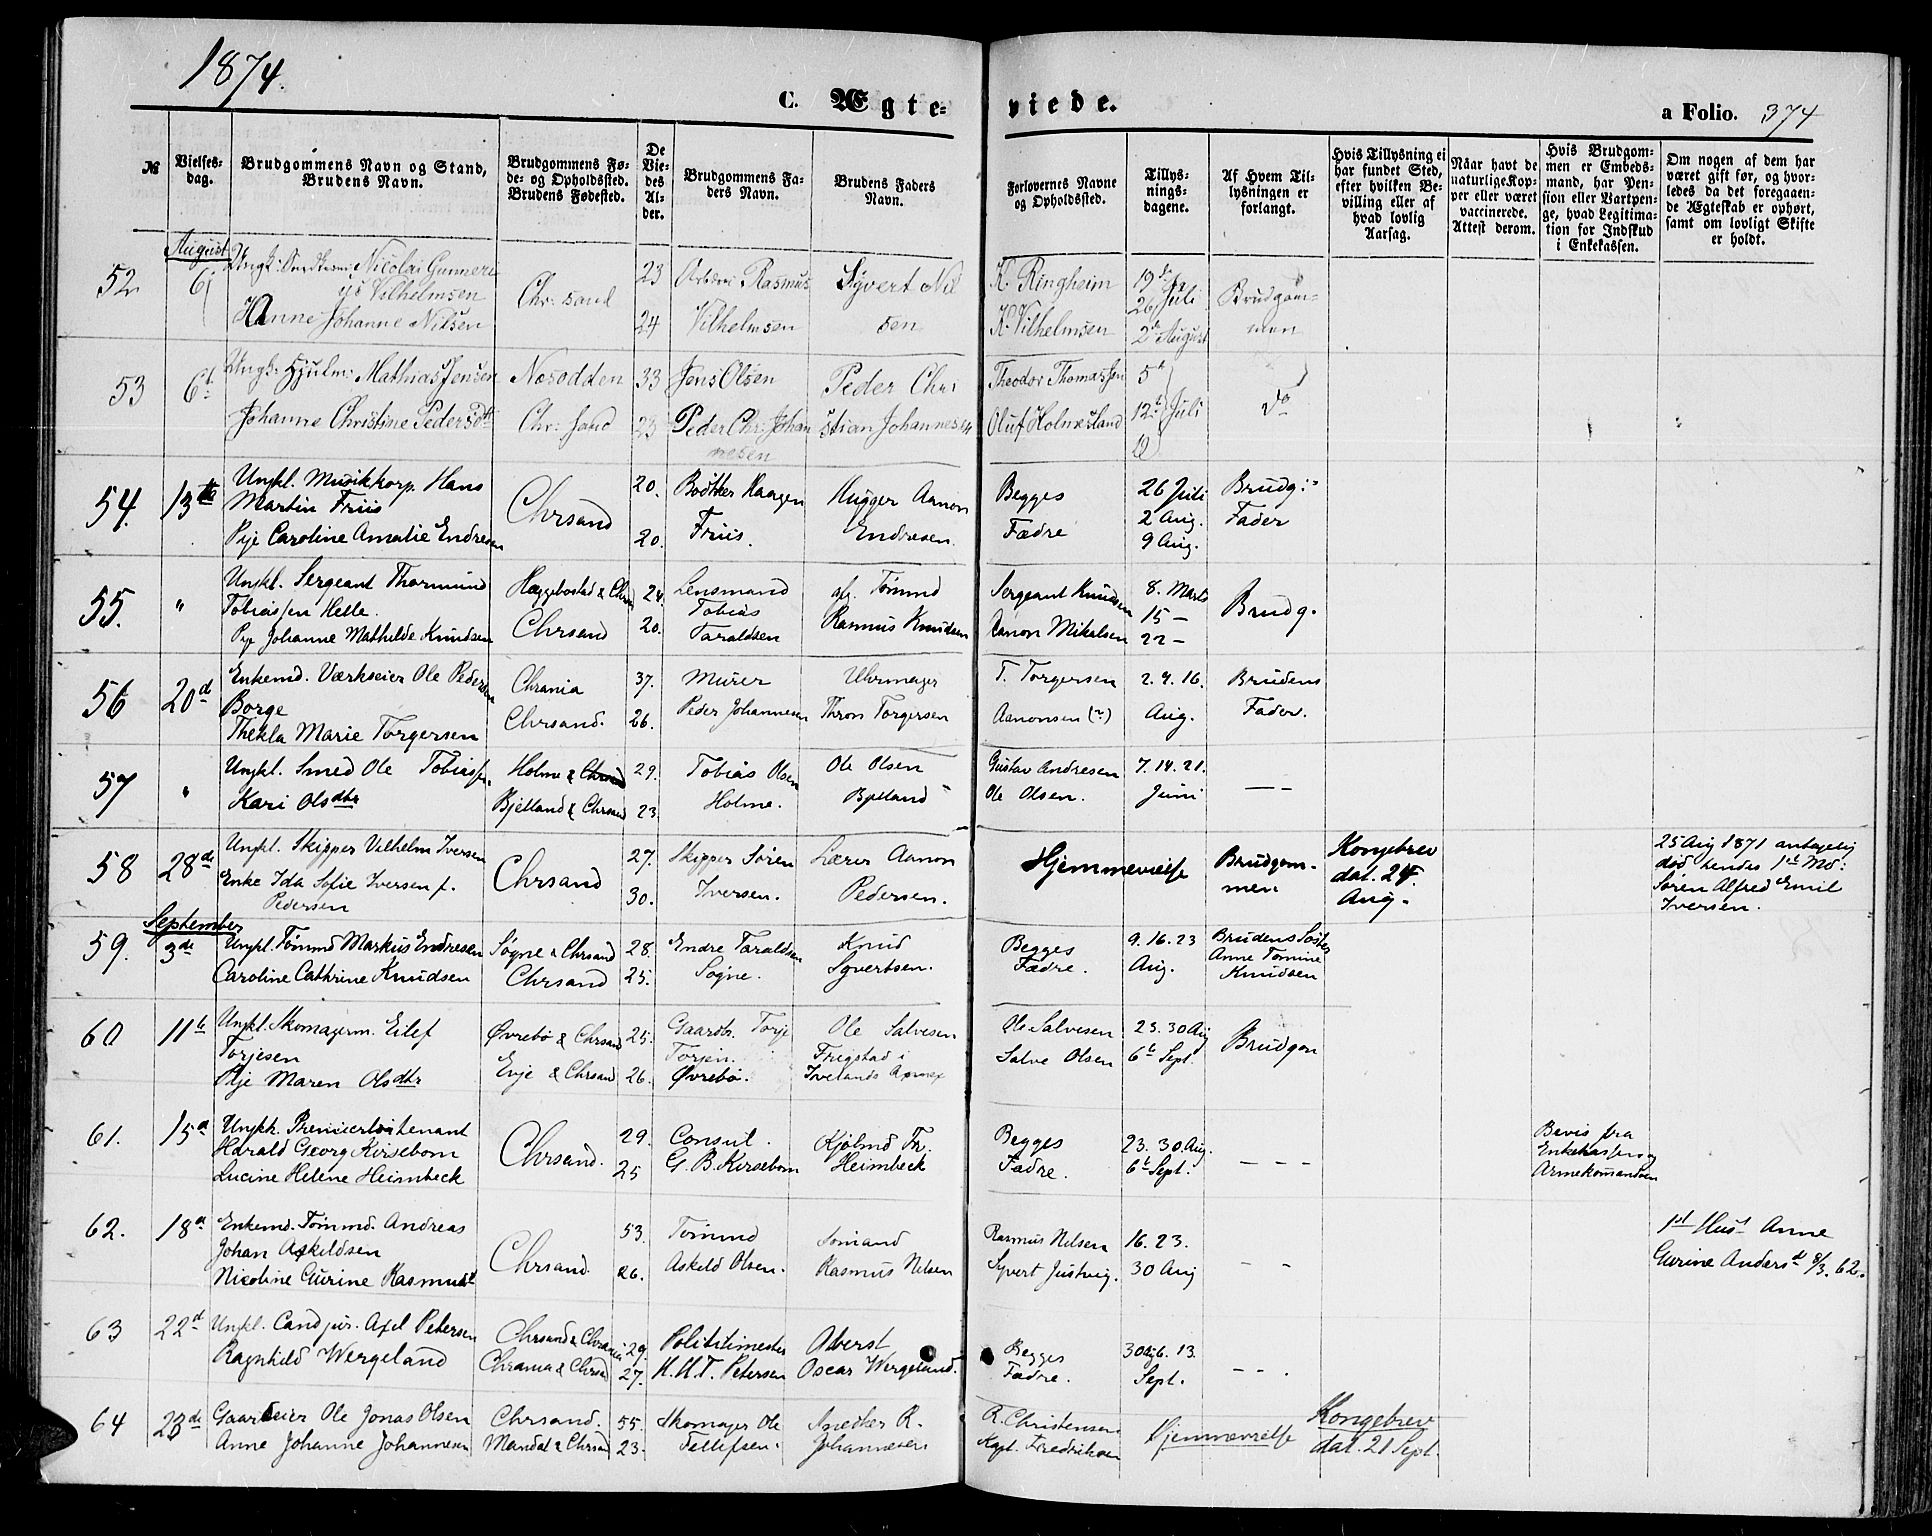 1874.
C. Ægte-
viede.
a Folio. 374
№
Vielses-
dag.
Brudgommens Navn og Stand,
Brudens Navn.
Brudgommens Fø-
de- og Opholdssted.
Brudens Fødested.
De
Vie-
des
Al-
der.
Brudgommens Fa-
ders Navn.
Brudens Faders
Navn.
Forlovernes Navne
og Opholdssted.
Tillys-
nings-
dagene.
Af Hvem Til-
lysningen er
forlangt.
Hvis Tillysning ei
har fundet Sted,
efter hvilken Be-
villing eller af
hvad lovlig
Aarsag.
Naar havt de
naturlige Kop-
per eller været
vaccinerede.
Attest derom.
Hvis Brudgom-
men er Embeds-
mand, har Pen-
sion eller Vartpen-
ge, hvad Legitima-
tion for Indskud
i Enkekassen.
Om nogen af dem har
været gift før, og hvor-
ledes da det foregaaen-
de Ægteskab er ophørt,
samt om lovligt Skifte
er holdt.
August
52 6
Nicolai Gunneri
us Vilhelmsen
Hanne Johanne Nilsen
Chr: sand
23
24
Rasmus
Vilhelmsen
Syvert Nil
sen
K. Ringheim
K. Vilhelmsen
19de
26 Juli
2de August
Brudgom-
men
53 6t
Ungk: Hjulm: Mathias Jensen
Johanne Christine Pedersdtr
Nesodden
Chr: sand
33
23
Jens Olsen
Peder Chr: Johan
nesen
Peder Chri
stian Johannesen
Theodor Thomassen
Oluf Holmesland
5te
12te Juli
19
do
54. 13de
Ungkl. Musikkorp. Hans
Martin Friis
Pige Caroline Amalie Endresen
Chrsand
20.
20.
Bødtker Haagen
Friis.
Hugger Aanon
Endresen.
Begges
Fædre
26 Juli
2 Aug.
9 Aug.
Brudg:s
Fader
55. "
Ungkl. Sergeant Thormund
Tobiassen Helle.
Pige Johanne Mathilde Knudsen
Hæggebostad & Chrsand
Chrsand
24.
20.
Lensmand
Tobias
Taraldsen
afg. Tømmd
Rasmus Knudsen
Sergeant Knudsen
Aanon Mikalsen
8. Marts
15 –
22 –
Brudg.
56 20d
Enkemd. Værkseier Ole Pedersen
Borge
Thekla Marie Torgersen
Chrania
Chrsand.
37.
26.
Murer
Peder Johannesen
Uhrmager
Thron Torgersen
T. Torgersen
Aanonsen (?)
2. 9. 16.
Aug.
Brudens
Fader.
57 "
Ungkl. Smed Ole Tobiassen
Kari Olsdtr
Holme & Chrsand
Bjelland & Chrsand
29.
23.
Tobias Olsen
Holme.
Ole Olsen
Bjelland
Gustav Andresen
Ole Olsen.
7. 14. 21.
Juni
– –
58 28de
Ungkl. Skipper Vilhelm Iversen
Enke Ida Sofie Iversen f.
Pedersen
Chrsand
27.
30.
Skipper Søren
Iversen.
Lærer Aanon
Pedersen.
Hjemmevielse
Brudgom-
men
Kongebrev
dat. 24.
Aug.
25 Aug 1871 antagelig
død hendes 1ste Md:
Søren Alfred Emil
Iversen.
September
59. 3de
Ungkl. Tømmd Markus Endresen
Caroline Cathrine Knudsen
Søgne & Chrsand
Chrsand
28.
25.
Endre Taraldsen
Søgne.
Knud
Syvertsen.
Begges
Fædre.
9. 16. 23
Aug.
Brudens Søster
Anne Tomine
Knudsen
60 11te
Ungkl. Skomagerm. Eilef
Torjesen
Pige Maren Olsdtr
Øvrebø & Chrsand
Evje & Chrsand
25.
26.
Gaardbr. Torje
Torjen.
Øvrebø.
Ole Salvesen
Frigstad i
Ivelands
Ole Salvesen
Salve Olsen
23. 30 Aug
6te Sept.
Brudgom
61. 15d
Ungk. Premierløitenant
Harald Georg Kirsebom
Lucine Helene Heimbeck
Chrsand.
29.
25
Consul.
G. B. Kirsebom
Kjølmd Fr.
Heimbeck
Begges
Fædre.
23. 30 Aug.
6te Sept.
– – –
Bevis fra
Enkekassen og
Armekomandoen
62. 18d
Enkemd. Tømmd. Andreas
Johan Askildsen
Nicoline Gurine Rasmusdt
Chrsand.
53.
26.
Tømmd
Askild Olsen.
Sømand
Rasmus Nilsen
Rasmus Nilsen
Syvert Justvig.
16. 23.
30 Aug
– –
1st Hust Anne
Gurine Andersd 8/3. 62.
63 22d
Ungkl. Cand jur. Axel Petersen
Ragnhild Wergeland
Chrsand & Chrania
Chrania & Chrsand
29.
27.
Politimester
H. H. T. Petersen
Oberst
Oscar Wergeland.
Begges
Fædre.
30 Aug 6. 13.
Sept.
– – .
64 23de
Gaardeier Ole Jonas Olsen
Anne Johanne Johannesen
Chrsand.
Mandal & Chrsand
55.
23.
Skomager Ole
Tellefsen.
Snedker R.
Johannesen
R. Christensen
Kapt. Fredriksen
Hjemmevielse
Kongebrev
dat. 21 Sept.